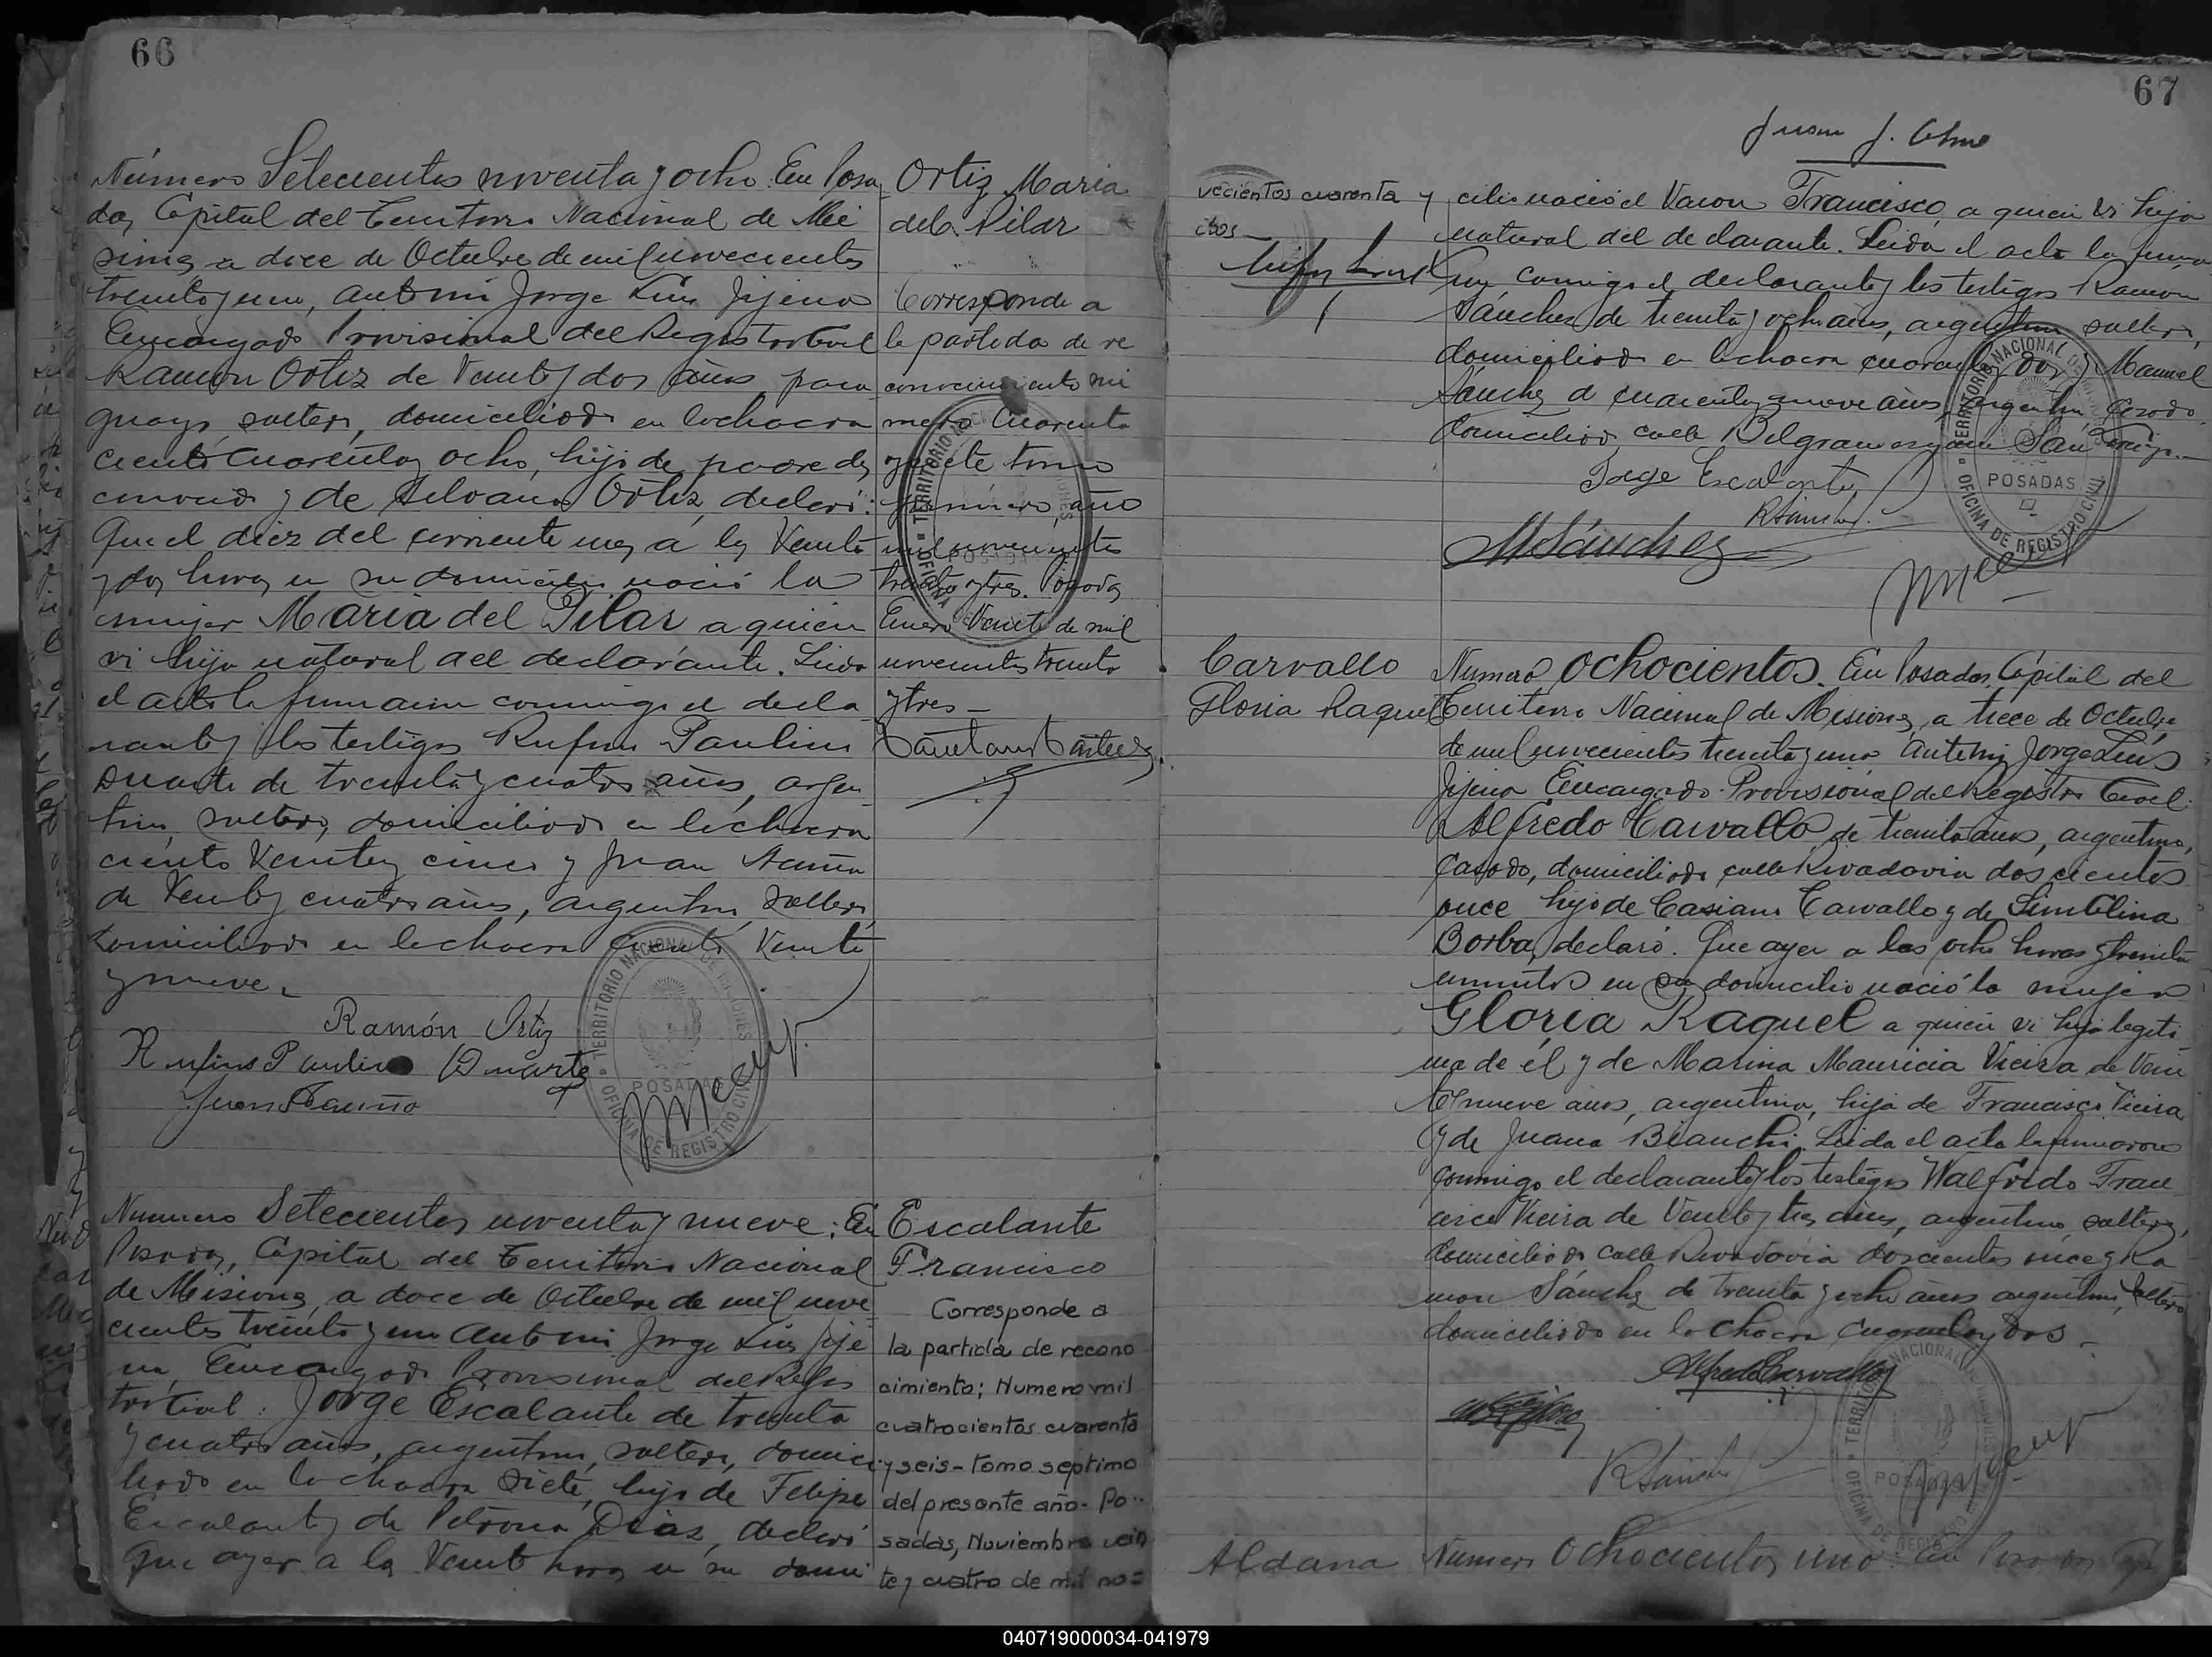 66
Número Setecientos noventa y ocho: En Posa
das, Capital del Territorio Nacional de Mi
siones a doce de Octubre de mil novecientos
treinta y uno, ante mi Jorge Luis Jijena
Encargado Provisional del Registro Civil
Ramón Ortiz de Veinte y dos años, para
guayo, soltero, domiciliado en la chacra
ciento cuarenta y ocho, hijo de padre des
conocido y de Silvana Ortiz, declaró:
Que el diez del corriente mes a las Veinte
y dos horas en su domicilio nació la
mujer María del Pilar a quien
vi hija natural del declarante. Leida
el acta la firmaron conmigo el decla
rante y los testigos Rufino Paulino
Duarte de treinta y cuatro años, argen
tino, soltero, domiciliado en la chacra
ciento Veinte y cinco y Juan
de Veinte y cuatro años, argentino, soltero,
domiciliado en la chacra ciento Veinte
y nueve.
Ramón Ortiz
Rufino Paulino Duarte
Juan
TERRITORIO NACIONAL DE MISIONES
POSADAS
OFICINA DE REGISTRO CIVIL
Ortiz María
del Pilar
Corresponde a
la partida de re
conocimiento nú
mero Cuarenta
y siete tomo
primero, año
mil novecientos
treinta y tres. Posadas
Enero Veinte de mil
novecientos treinta
y tres-
Numero Setecientos noventa y nueve: En
Posadas, Capital del Territorio Nacional
de Misiones, a doce de Octubre de mil nove
cientos treinta y uno ante mi Jorge Luis Jije
na, Encargado Provisional del Regis
tro Civil: Jorge Escalante de treinta
y cuatro años, argentino, soltero, domici
liado en la chacra siete, hijo de Felipe
Escalante y de Petrona Diaz, declaró
Que ayer a las Veinte horas en su domi
Escalante
Francisco
Corresponde a
la partida de recono
cimiento; Numero mil
cuatrocientos cuarenta
y seis- tomo septimo
del presente año- Po-
sadas, Noviembre vein
te y cuatro de mil no=
67
vecientos cuarenta y
dos-
cilio nació el Varon Francisco, a quien vi hijo
natural del declarante. Leida el acta la firma
ron conmigo el declarante y los testigos Ramón
Sánchez de treinta y ocho años, argentino, soltero,
domiciliado en la chacra cuarenta y dos y Manuel
Sánchez de cuarenta y nueve años, argentino, casado,
domiciliado calle Belgrano esquina San
Jorge Escalante
RSánchez
MSánchez
TERRITORIO NACIONAL DE MISIONES
POSADAS
OFICINA DE REGISTRO CIVIL
Carvallo
Gloria Raquel
Numero Ochocientos. En Posadas, Capital del
Territorio Nacional de Misiones, a trece de Octubre
de mil novecientos treinta y uno ante mi, Jorge Luis
Jijena Encargado Provisional del Registro Civil:
Alfredo Carvallo, de treinta años, argentino,
casado, domiciliado calle Rivadavia doscientos
once hijo de Casiano Carvallo y de
Borba, declaró: Que ayer a las ocho horas y treinta
minutos en su domicilio nació la mujer
Gloria Raquel a quien vi hija legíti
ma de él y de Marina Mauricia Vieira de Vein
te y nueve años, argentina, hija de Francisco Vieira
y de Juana Bianchi. Leida el acta la firmaron
conmigo el declarante y los testigos Walfrido Fran
cisco Vieira de Veinte y tres años, argentino, soltero,
domiciliado calle Rivadavia doscientos once y Ra
mon Sánchez de treinta y ocho años argentino, soltero
domiciliado en la chacra cuarenta y dos-
Alfredo Carvallo
RSánchez
TERRITORIO NACIONAL DE MISIONES
POSADAS
OFICINA DE REGISTRO CIVIL
Aldana
Numero Ochocientos uno: En Posadas Cap
040719000034-041979